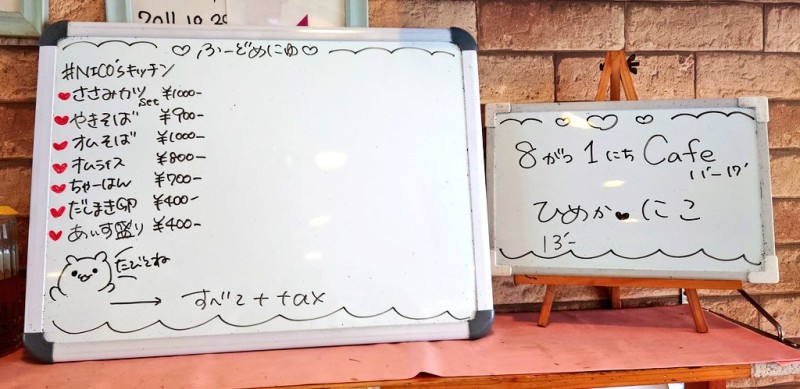 2011.10.29
♡ ふーどめにゅ ♡
#NICO'sキッチン
♥ ささみカツset ¥1000-
♥ やきそば ¥900-
♥ オムそば ¥1000-
♥ オムライス ¥800-
♥ ちゃーはん ¥700-
♥ だしまき卵 ¥400-
♥ あいす盛り ¥400-
たべてね
→ すべて + tax
8がつ1にち Cafe
11じ-17じ
ひめか♥にこ
13じ-